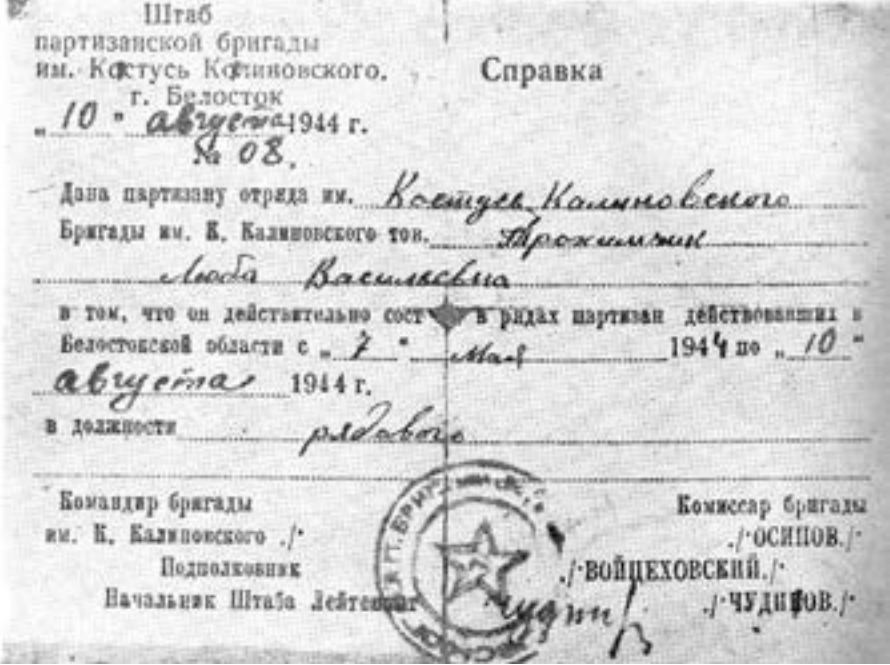 Штаб
партизанской бригады
им. Костусь Калиновского.
г. Белосток
Справка
„ 10 " августа 1944 г.
№ 08.
Дана партизану отряда им. Костусь Калиновского
Бригады им. К. Калиновского тов. Трохимчик
Люба Васильевна
в том, что он действительно сост в рядах партизан действовавших в
Белостокской области с „ 7 " Мая 1944 по „ 10 "
августа 1944 г.
в должности рядового
Командир бригады
им. К. Калиновского ./·
Подполковник
Начальник Штаба Лейтенант
Комиссар бригады
./·ОСИПОВ./·
./·ВОЙЦЕХОВСКИЙ./·
./·ЧУДИНОВ./·